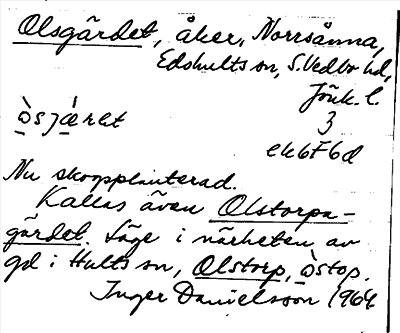 Olsgärdet, åker, Norrsånna,
Edshults sn, S. Vedbo hd,
Jönk. l.
3
ek6F6d
Nu skogsplanterad.
Kallas även Olstorpa-
gärdet. Läge i närheten av
gd i Hults sn, Olstorp, òstop.
Inger Danielsson 1964